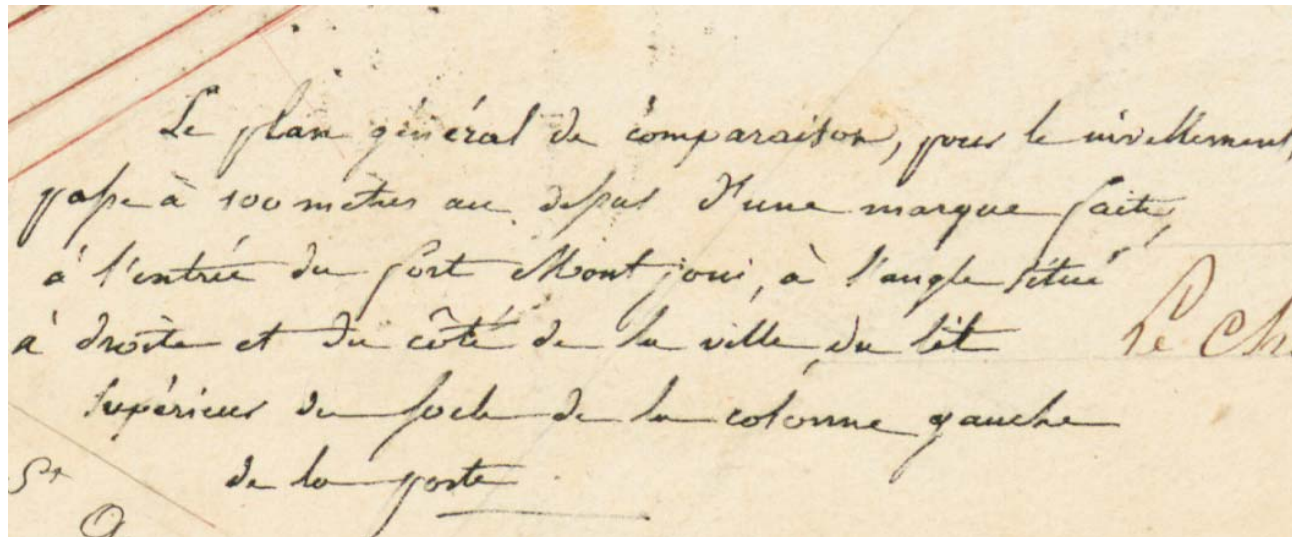 Le plan général de comparaison, pour le nivellement,
passe à 100 mètres au dessus d'une marque faite,
à l'entrée du fort Mont joui, à l'angle situé
à droite et du côté de la ville, du lit
Le Ch
supérieur du socle de la colonne gauche
de la porte
St